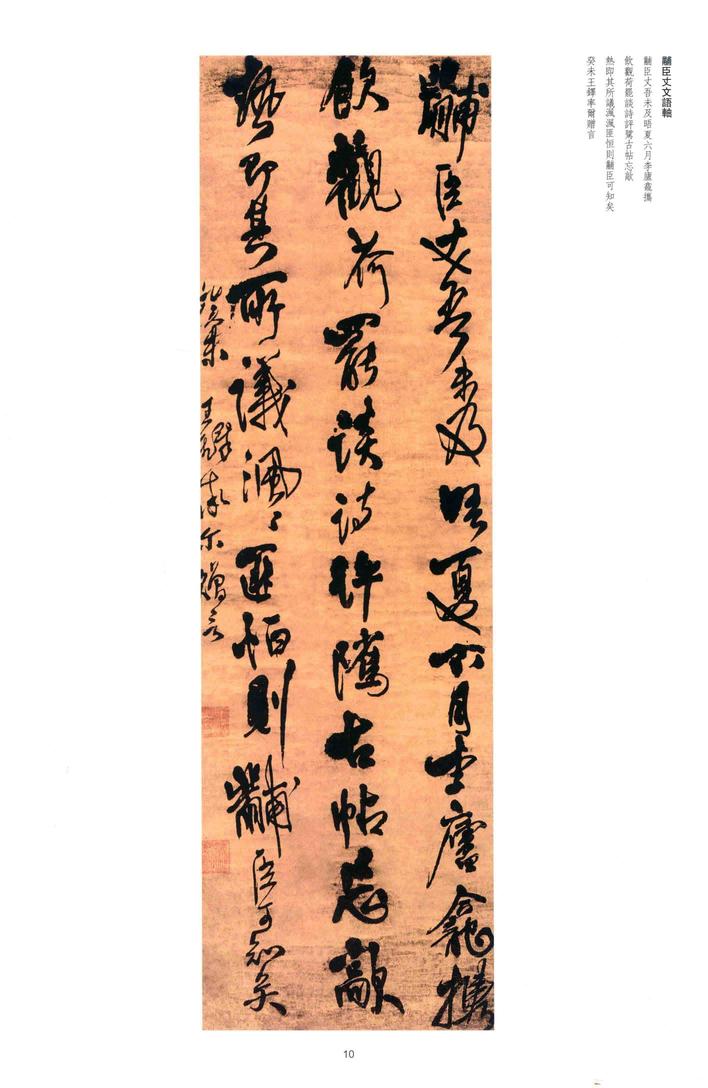 黼臣丈文語軸
黼臣丈吾未及晤夏六月李廬龕攜
飲觀荷罷談詩評騭古帖忘歊
熱即其所議渢渢匪恒則黼臣可知矣
癸未王鐸率爾贈言
黼臣丈吾未及晤夏六月李廬龕攜
飲觀荷罷談詩評騭古帖忘歊
熱即其所議渢〻匪恒則黼臣可知矣
癸未王鐸率尔贈言
10